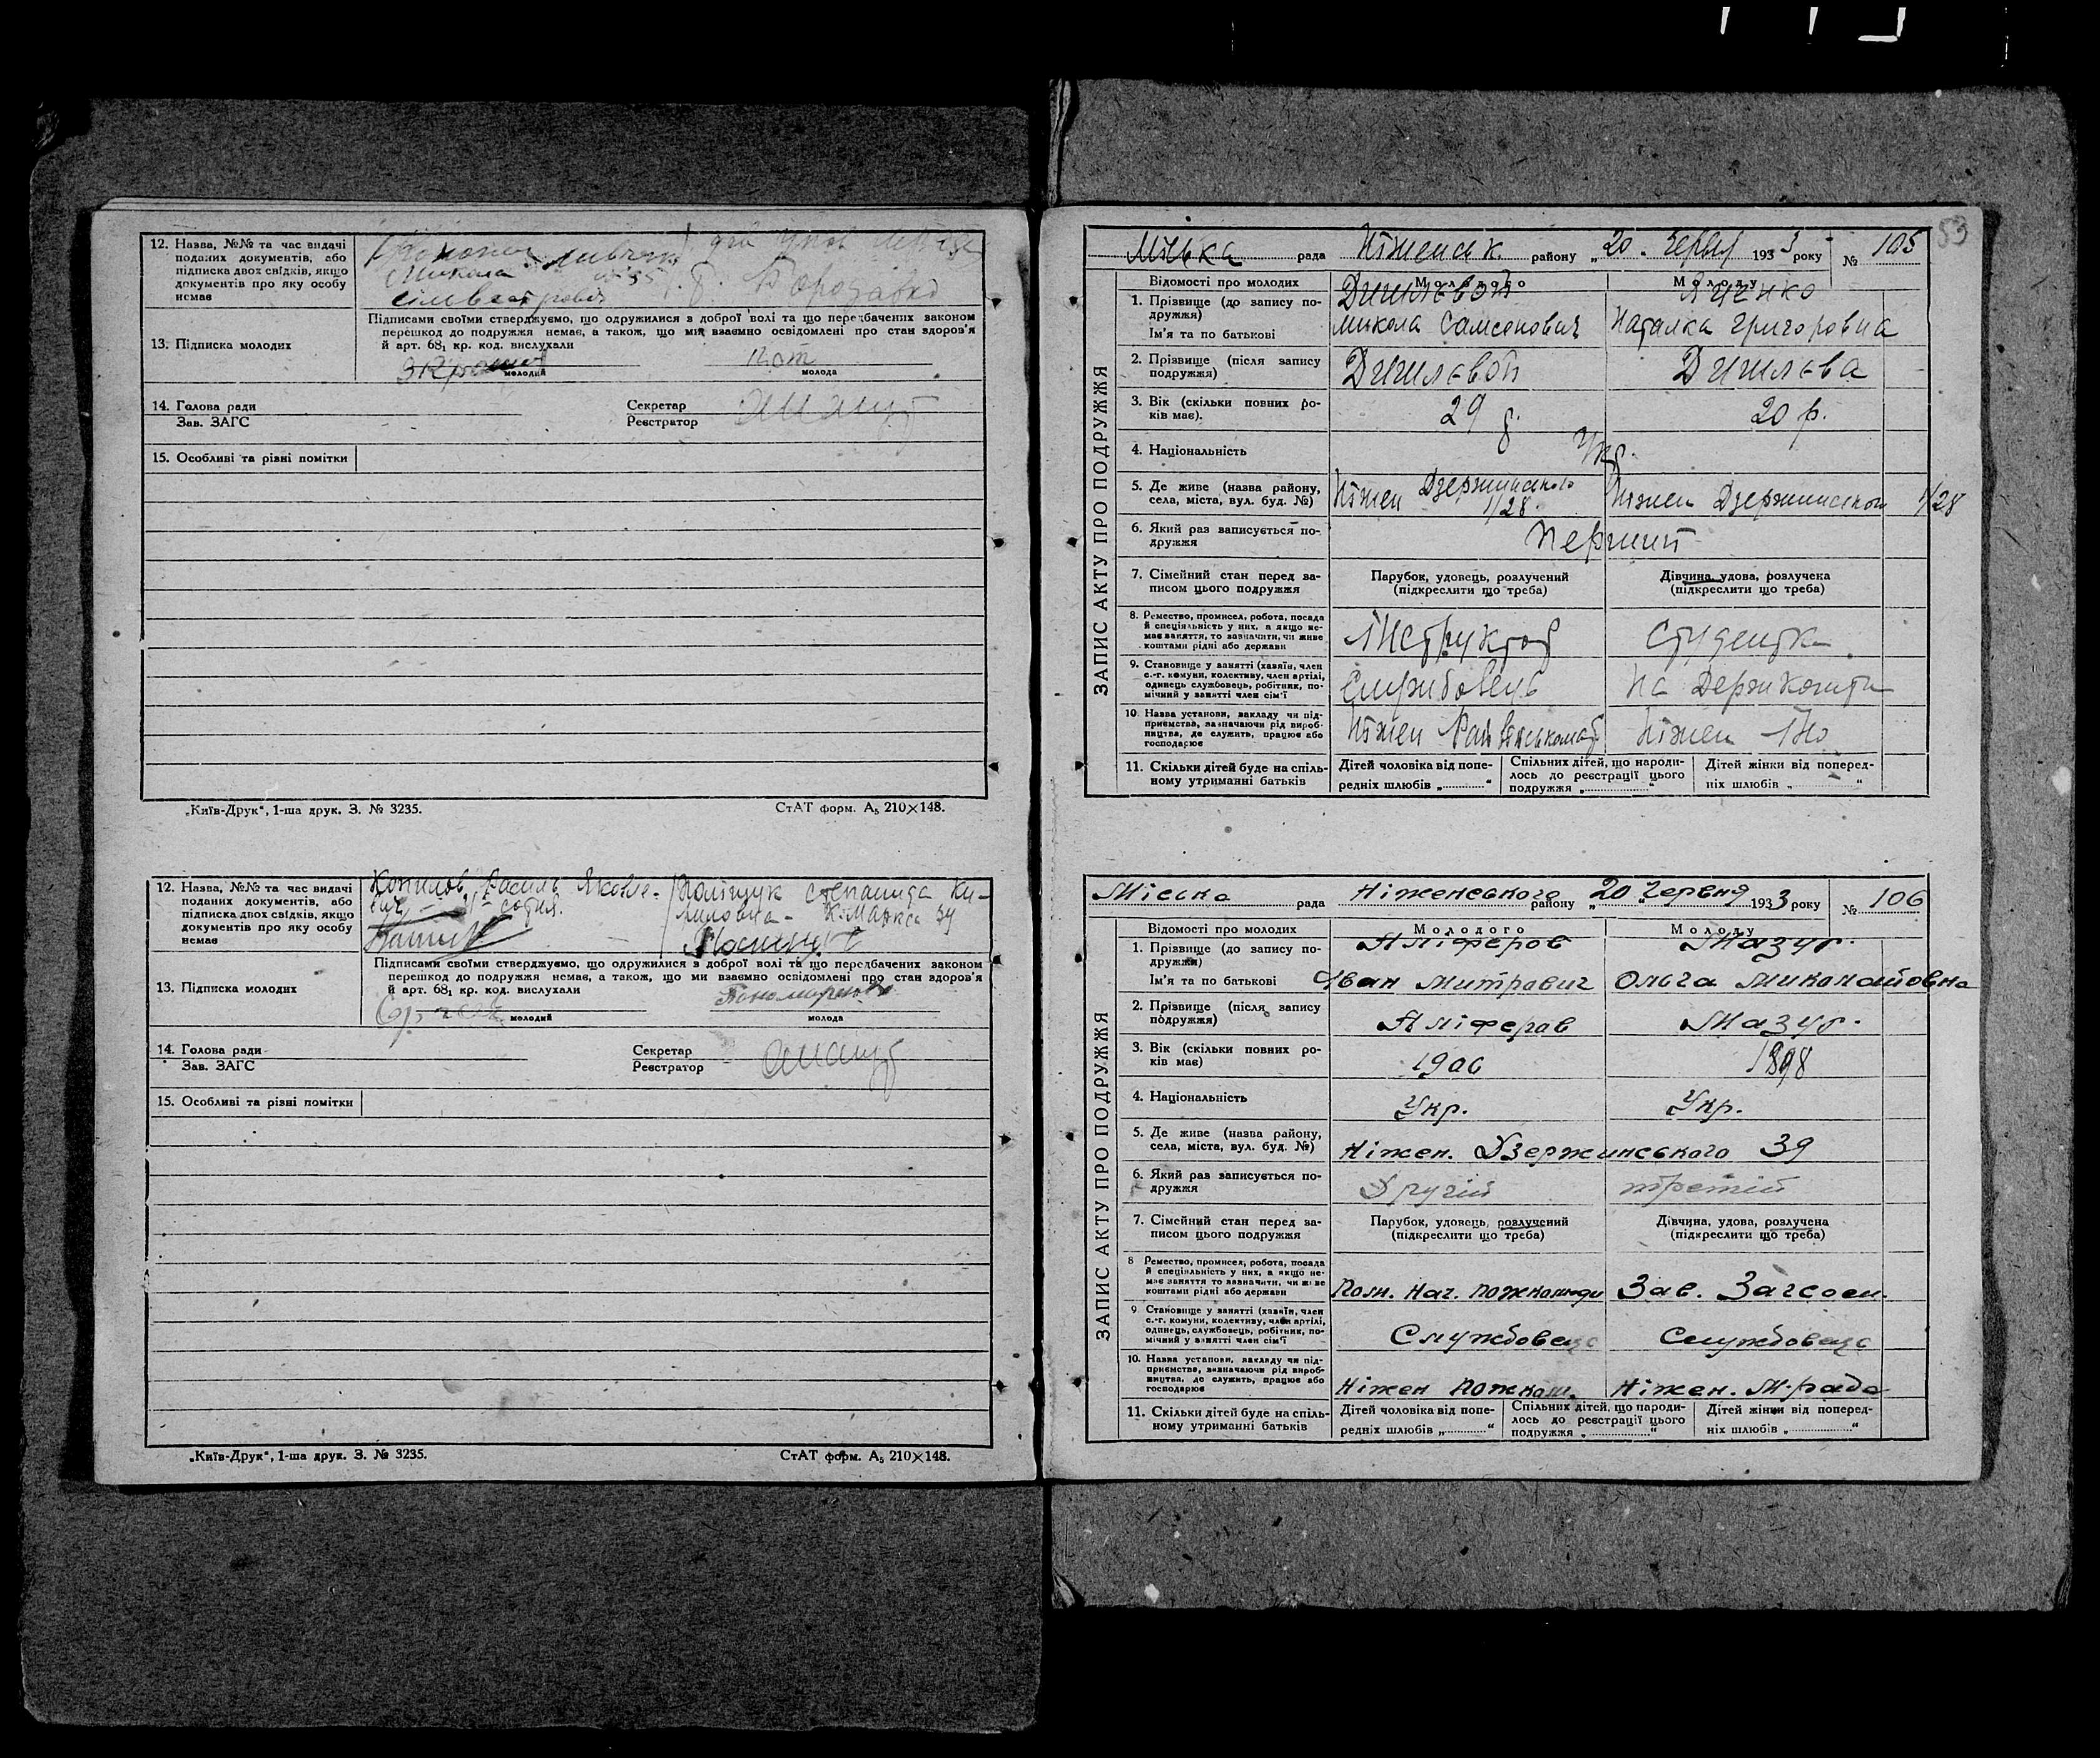 12. Назва, №№ та час видачі
поданих документів, або
підписка двох свідків, якщо
документів про яку особу
немає
Микола
13. Підписка молодих
Підписами своїми стверджуємо, що одружилися з доброї волі та що передбачених законом
перешкод до подружжя немає, а також, що ми взаємно освідомлені про стан здоров'я
й арт. 68₁ кр. код. вислухали
молодий
Кот
молода
14. Голова ради
Зав. ЗАГС
Секретар
Реєстратор
15. Особливі та різні помітки
„Київ-Друк“, 1-ша друк. З. № 3235.
СтАТ форм. А₅ 210×148.
12. Назва, №№ та час видачі
поданих документів, або
підписка двох свідків, якщо
документів про яку особу
немає
Копилов Василь Якове-
Поліщук Степанида Ки-
риловна - К. Маркса 34
13. Підписка молодих
Підписами своїми стверджуємо, що одружилися з доброї волі та що передбачених законом
перешкод до подружжя немає, а також, що ми взаємно освідомлені про стан здоров'я
й арт. 68₁ кр. код. вислухали
молодий
молода
14. Голова ради
Зав. ЗАГС
Секретар
Реєстратор
15. Особливі та різні помітки
„Київ-Друк“, 1-ша друк. З. № 3235.
СтАТ форм. А₅ 210×148.
53
ЗАПИС АКТУ ПРО ПОДРУЖЖЯ
Міська рада Ніженськ. району „20. Червня 1933 року № 105
Відомості про молодих
Молодого
Молоду
1. Прізвище (до запису по-
дружжя)
Ім'я та по батькові
Яценко
Микола Самсонович
Наталка Григоровна
2. Прізвище (після запису
подружжя)
3. Вік (скільки повних ро-
ків має).
29 р.
20 р.
4. Національність
Укр.
5. Де живе (назва району,
села, міста, вул. буд. №)
Ніжен Дзержинського
1/28
Ніжен Дзержинського 1/28
6. Який раз записується по-
дружжя
Перший
7. Сімейний стан перед за-
писом цього подружжя
Парубок, удовець, розлучений
(підкреслити що треба)
Дівчина, удова, розлучена
(підкреслити що треба)
8. Ремество, промисел, робота, посада
й спеціяльність у них, а якщо не-
має заняття, то зазначити, чи живе
коштами рідні або держави
Інструктор
Студентка
9. Становище у занятті (хазяїн, член
с.-г. комуни, колективу, член артілі,
одинець службовець, робітник, по-
мічний у занятті член сім'ї
Службовець
На Держкошти
10. Назва установи, закладу чи під-
приємства, зазначаючи рід вироб-
ництва, де служить, працює або
господарює
Ніжен
Ніжен ІНО
11. Скільки дітей буде на спіль-
ному утриманні батьків
Дітей чоловіка від попе-
редніх шлюбів „ “
Спільних дітей, що народи-
лось до реєстрації цього
подружжя „ “
Дітей жінки від поперед-
ніх шлюбів „ “
ЗАПИС АКТУ ПРО ПОДРУЖЖЯ
Міська рада Ніженського району „20„ Червня 1933 року № 106
Відомості про молодих
Молодого
Молоду
1. Прізвище (до запису по-
дружжя)
Ім'я та по батькові
Аліферов
Мазур.
Іван Митрович
Ольга Миколайовна
2. Прізвище (після запису
подружжя)
Аліферов
Мазур.
3. Вік (скільки повних ро-
ків має)
1906
1898
4. Національність
Укр.
Укр.
5. Де живе (назва району,
села, міста, вул. буд. №)
Ніжен. Дзержинського 39
6. Який раз записується по-
дружжя
Другій
третій
7. Сімейний стан перед за-
писом цього подружжя
Парубок, удовець, розлучений
(підкреслити що треба)
Дівчина, удова, розлучена
(підкреслити що треба)
8 Ремество, промисел, робота, посада
й спеціяльність у них, а якщо не-
має заняття то зазначити, чи живе
коштами рідні або держави
Нач.
Зав. Загсом.
9 Становище у занятті (хазяїн, член
с.-г. комуни, колективу, член артілі,
одинець, службовець, робітник, по-
мічний у занятті член сім'ї
Службовець
Службовець
10. Назва установи, закладу чи під-
приємства, зазначаючи рід вироб-
ництва, де служить, працює або
господарює
Ніжен
Ніжен. М-рада
11. Скільки дітей буде на спіль-
ному утриманні батьків
Дітей чоловіка від попе-
редніх шлюбів „ “
Спільних дітей, що народи-
лось до реєстрації цього
подружжя „ “
Дітей жінки від поперед-
ніх шлюбів „ “